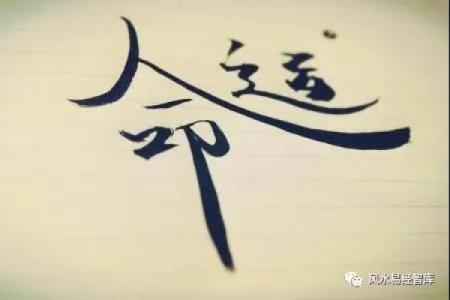 命运
风水易经智库